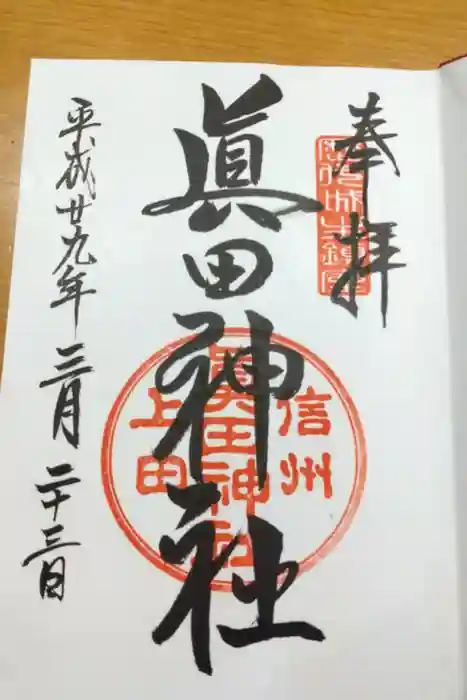 奉拝
眞田神社
信州
眞田神社
上田
平成廿九年三月二十三日